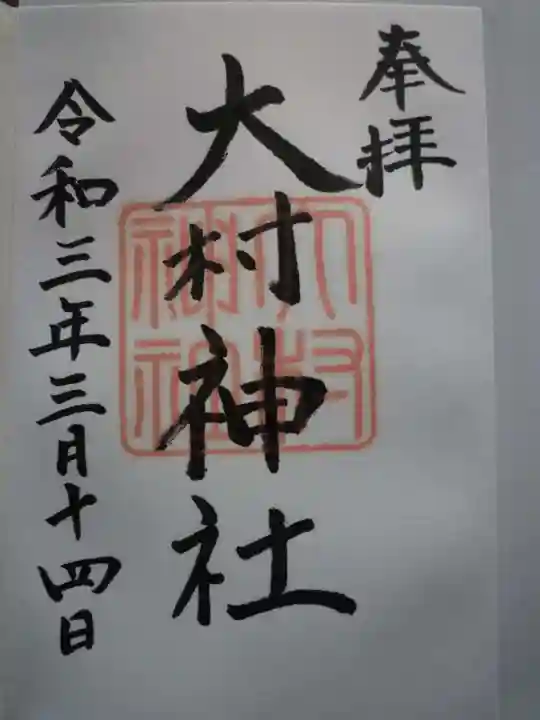 奉拝
大村神社
令和三年三月十四日